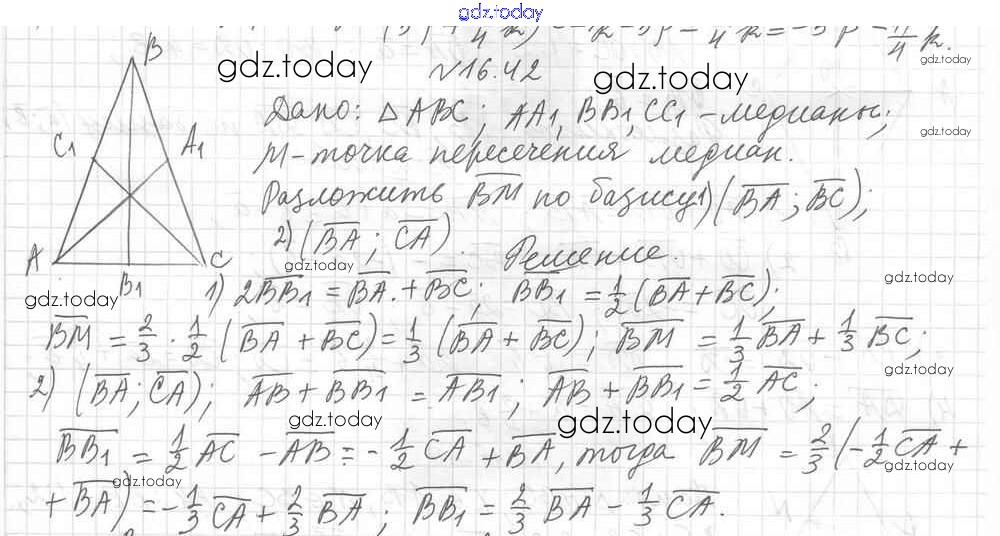 gdz.today
(3p + 4k) = -k - 3p - 4k = -3p - 11/4 k.
gdz.today №16.42 gdz.today gdz.today
Дано: △ABC; AA1, BB1, CC1 - медианы; gdz.today
M - точка пересечения медиан.
Разложить BM по базису 1) (BA; BC);
2) (BA; CA). Решение.
B
C1 A1
A C
B1
gdz.today gdz.today gdz.today
1) 2BB1 = BA + BC; BB1 = 1/2 (BA + BC);
BM = 2/3 · 1/2 (BA + BC) = 1/3 (BA + BC); BM = 1/3 BA + 1/3 BC;
gdz.today
2) (BA; CA); AB + BB1 = AB1; AB + BB1 = 1/2 AC;
gdz.today gdz.today
BB1 = 1/2 AC - AB = -1/2 CA + BA, тогда BM = 2/3 (-1/2 CA +
gdz.today gdz.today
+ BA) = -1/3 CA + 2/3 BA; BB1 = 2/3 BA - 1/3 CA.